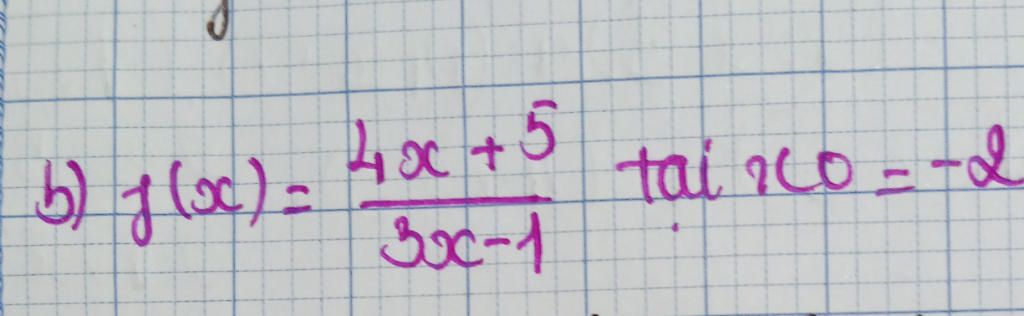 b) f(x) = \frac{4x + 5}{3x - 1} tại x0 = -2